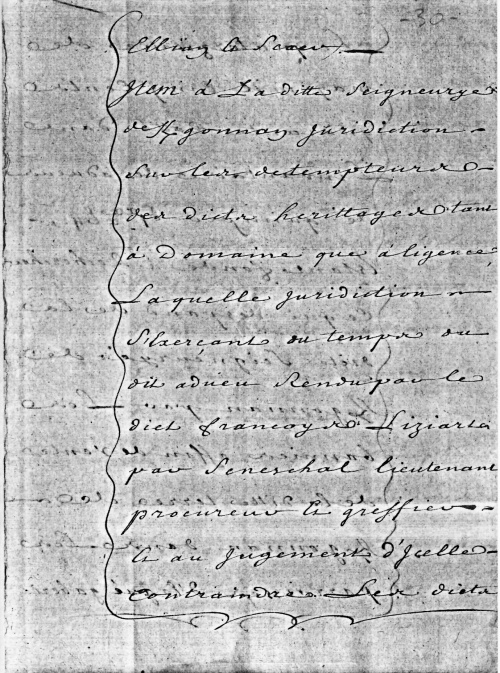 -30-
Item á La ditte Seigneurye
de K/gonnan Juridiction
Sur les detempteurs
des dicts herittages tant
á Domaine que á ligence,
Laquelle Juridiction
S'Exerçant du temps du
dit adveu Rendu par le
dict francoys Liziart
par Seneschal lieutenant
procureur Et greffier
Et au Jugement d'Jcelle
Contraindre Les dicts